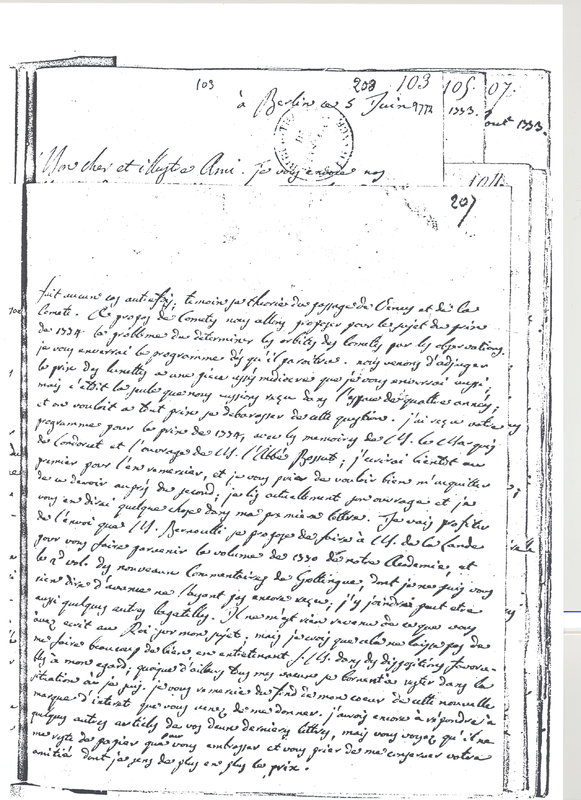 103 208 103 105. 07.
à Berlin ce 5 Juin 1772 1773. out 1773.
Mon cher et illustre Ami. Je vous envoie nos
104
207
fait aucun cas autrefois, temoin sa theorie du passage de Venus et de la
Comete. A propos de Cometes nous allons proposer pour le sujet du prix
de 1774 le problème de determiner les orbites des Cometes par les observations.
je vous enverrai le programme dès qu'il paroitra. nous venons d'adjuger
le prix des lunettes a une piece assés mediocre que je vous enverrai aussi;
mais c'étoit la seule que nous eussions reçue dans l'espace de quattre années,
et on vouloit a tout prix se debarasser de cette question. j'ai reçu votre
programme pour le prix de 1774, avec les memoires de M. le Marquis
de Condorcet et l'ouvrage de M. l'Abbé Bossut; j'ecrirai bientot au
premier pour l'en remercier, et je vous prie de vouloir bien m'acquitter
de ce devoir auprès du second; je lis actuellement son ouvrage et je
vous en dirai quelque chose dans ma premiere lettre. Je vais profiter
de l'envoi que M. Bernoulli se propose de faire à M. de la Lande
pour vous faire parvenir le volume de 1770 de notre Academie, et
le 2d vol. des nouveaux Commentaires de Gottingue, dont je ne puis vous
rien dire d'avance ne l'ayant pas encore reçu; j'y joindrai peut etre
aussi quelques autres bagatelles. Il ne m'est rien revenu de ce que vous
avez ecrit au Roi sur mon sujet; mais je crois que cela ne laisse pas de
me faire beaucoup de bien en entretenant S.M. dans des dispositions favora-
bles a mon egard, quoique d'ailleurs tous mes voeux se bornent a rester dans la
situation où je suis. je vous remercie du fond de mon coeur de cette nouvelle
marque d'interet que vous venez de me donner. j'aurois encore à répondre a
quelques autres articles de vos deux dernieres lettres, mais vous voyez qu'il ne
me reste de papier que pour vous embrasser et vous prier de me conserver votre
amitié dont je sens de plus en plus le prix.